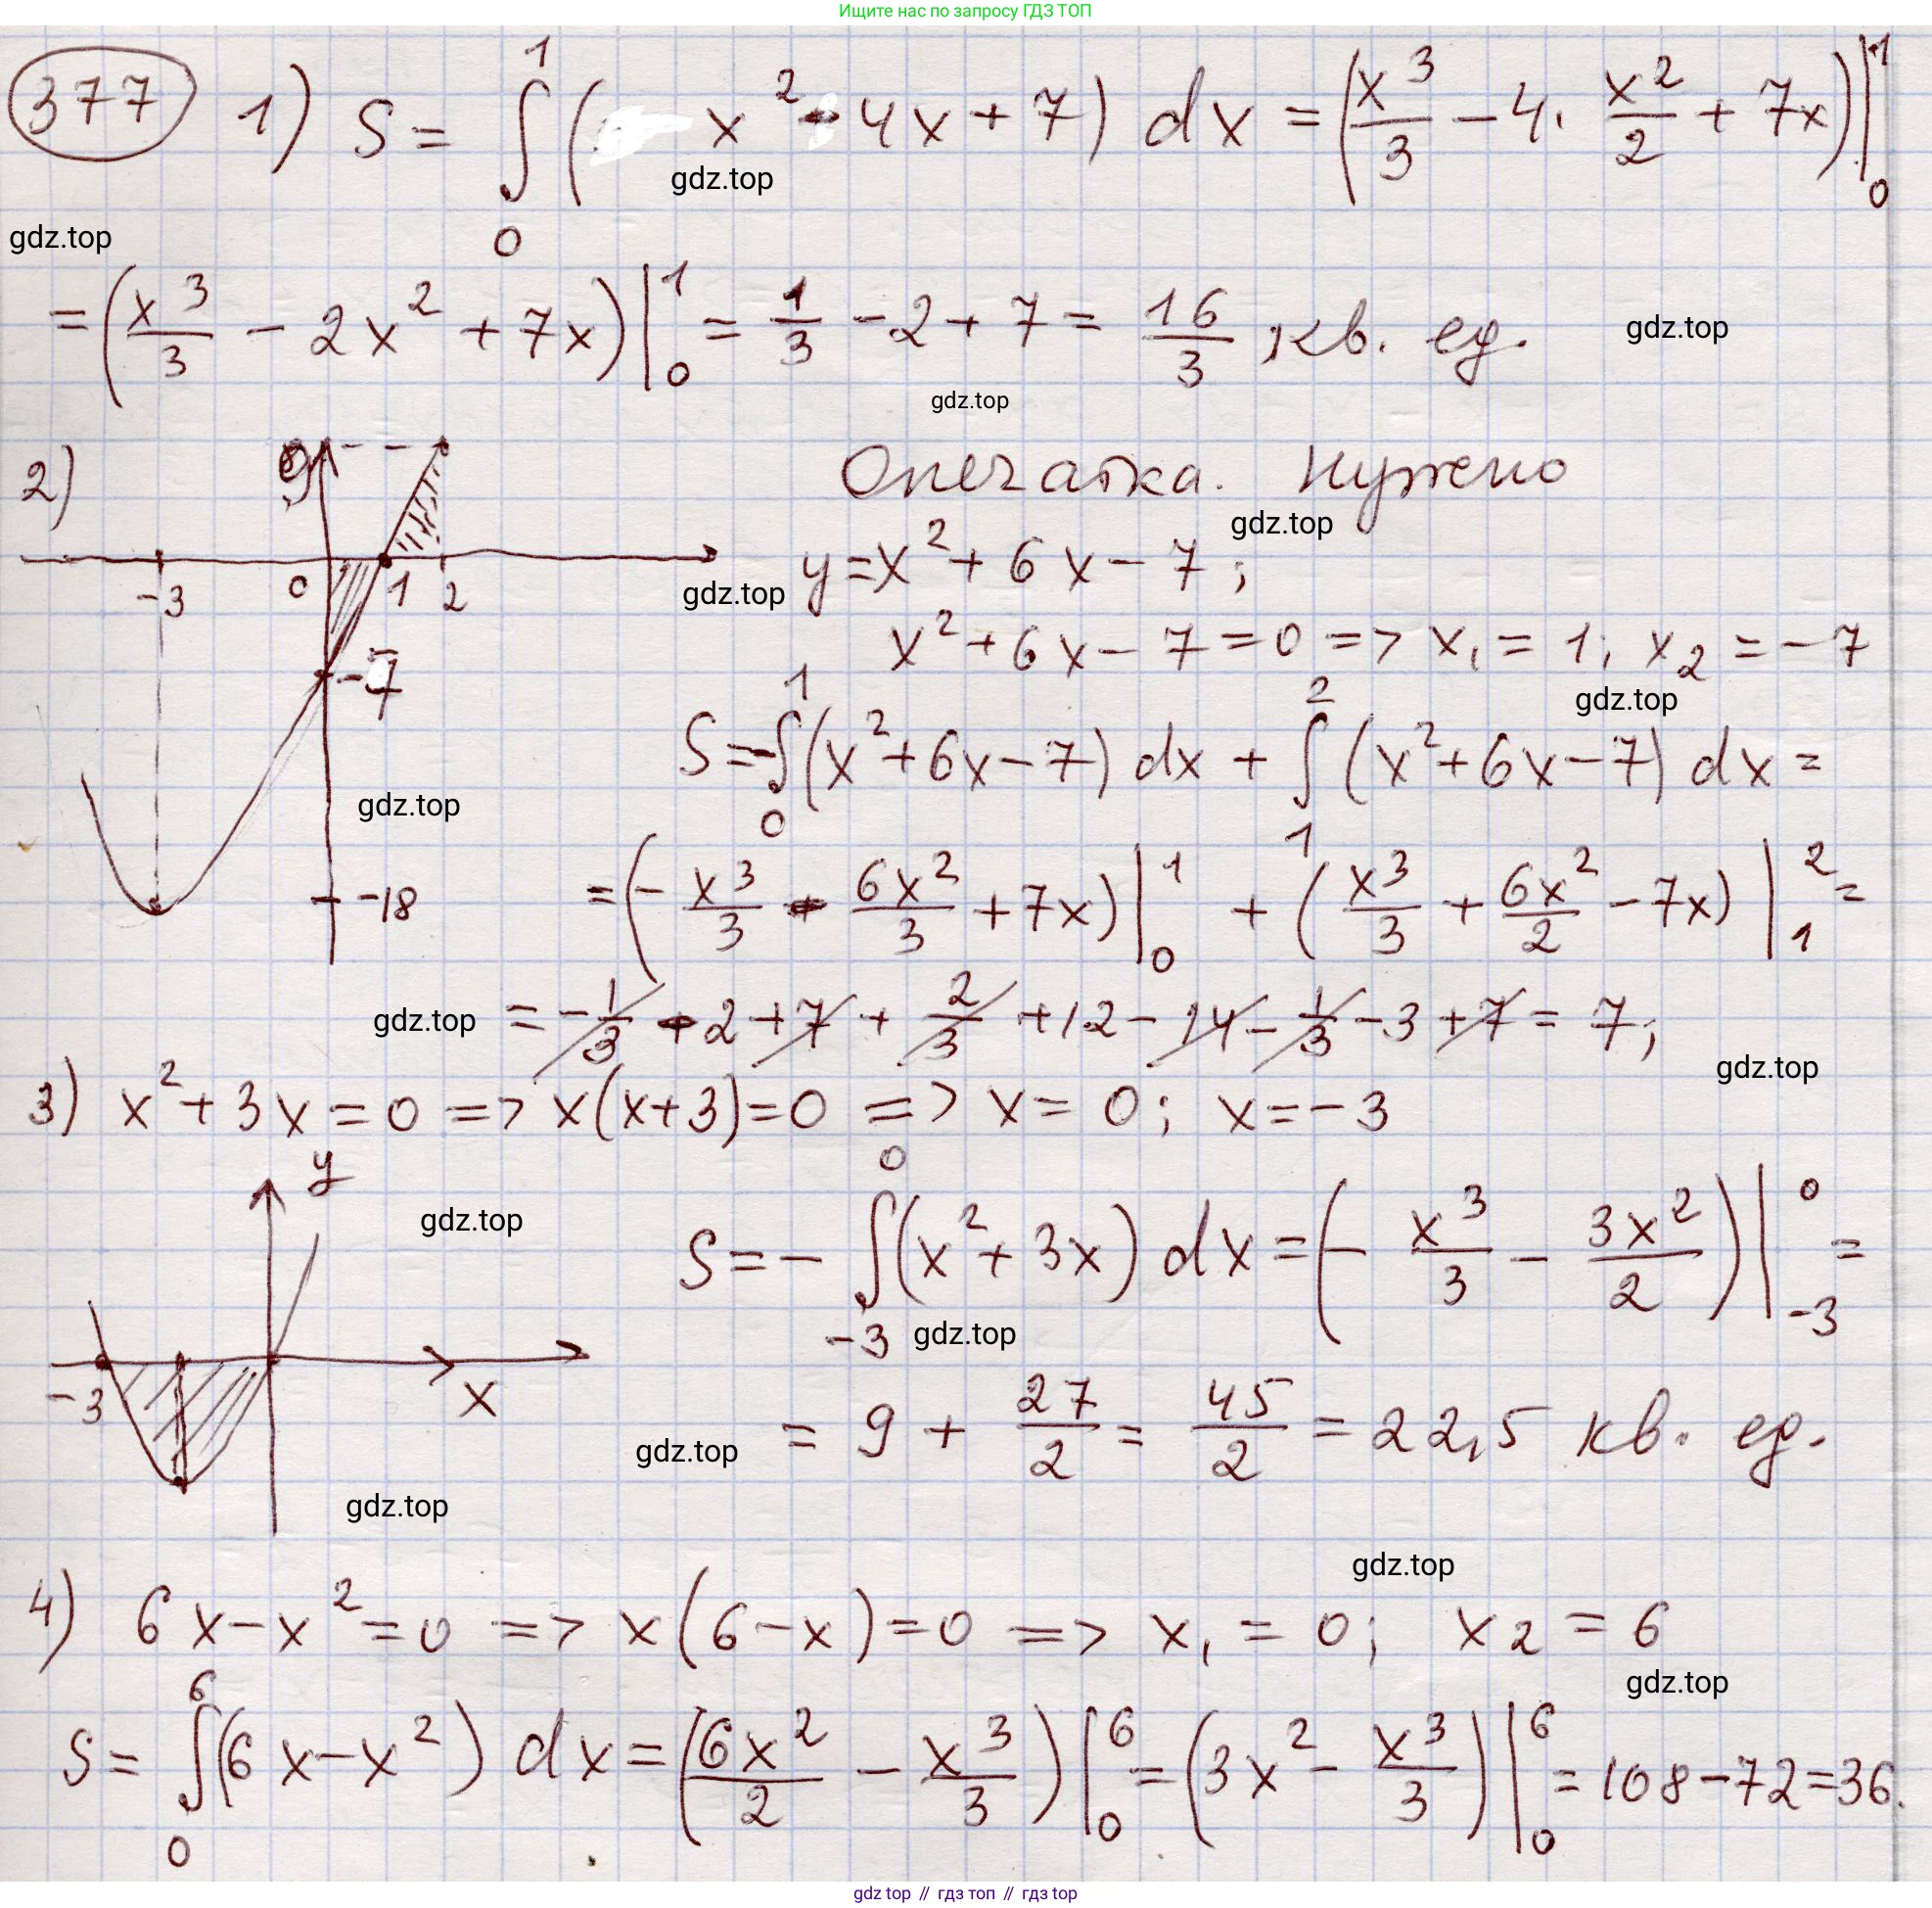 Ищите нас по запросу ГДЗ ТОП
377 1) S = ∫₀¹ (x² - 4x + 7) dx = (x³/3 - 4 · x²/2 + 7x)|₀¹
gdz.top
gdz.top
= (x³/3 - 2x² + 7x)|₀¹ = 1/3 - 2 + 7 = 16/3 кв. ед.
gdz.top
gdz.top
2) y 0 -3 1 2 -7 -18
Опечатка. Нужно
gdz.top
y = x² + 6x - 7;
gdz.top
x² + 6x - 7 = 0 => x₁ = 1; x₂ = -7
gdz.top
S = -∫₀¹ (x² + 6x - 7) dx + ∫₁² (x² + 6x - 7) dx =
gdz.top
= (-x³/3 - 6x²/3 + 7x)|₀¹ + (x³/3 + 6x²/2 - 7x)|₁² =
gdz.top
= -1/3 - 2 + 7 + 2/3 + 12 - 14 - 1/3 - 3 + 7 = 7;
gdz.top
3) x² + 3x = 0 => x(x+3) = 0 => x = 0; x = -3
y
gdz.top
S = -∫₋₃⁰ (x² + 3x) dx = (- x³/3 - 3x²/2)|₋₃⁰ =
gdz.top
-3 x
= 9 + 27/2 = 45/2 = 22,5 кв. ед.
gdz.top
gdz.top
gdz.top
4) 6x - x² = 0 => x(6 - x) = 0 => x₁ = 0; x₂ = 6
gdz.top
S = ∫₀⁶ (6x - x²) dx = (6x²/2 - x³/3)|₀⁶ = (3x² - x³/3)|₀⁶ = 108 - 72 = 36.
gdz top // гдз топ // гдз top